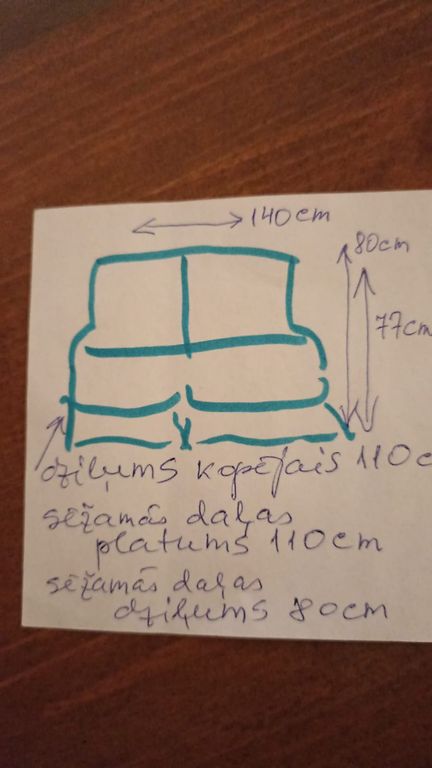 140cm
80cm
77cm
dziļums kopējais 110c
sēžamās daļas
platums 110cm
sēžamās daļas
dziļums 80cm